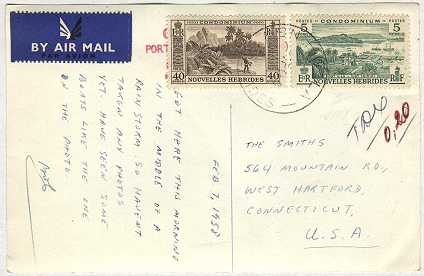 BY AIR MAIL
PAR AVION
POSTES CONDOMINIUM
40 40
NOUVELLES HEBRIDES
POSTES CONDOMINIUM POSTES
5 5
E II R RF
NOUVELLES HEBRIDES
PORT
TAX
0,20
FEB 7, 1958
GOT HERE THIS MORNING
IN THE MIDDLE OF A
RAIN STORM, SO HAVEN'T
TAKEN ANY PHOTOS
YET. HAVE SEEN SOME
BOATS LIKE THE ONE
ON THE PHOTO.
THE SMITHS
564 MOUNTAIN RD.,
WEST HARTFORD,
CONNECTICUT,
U.S.A.